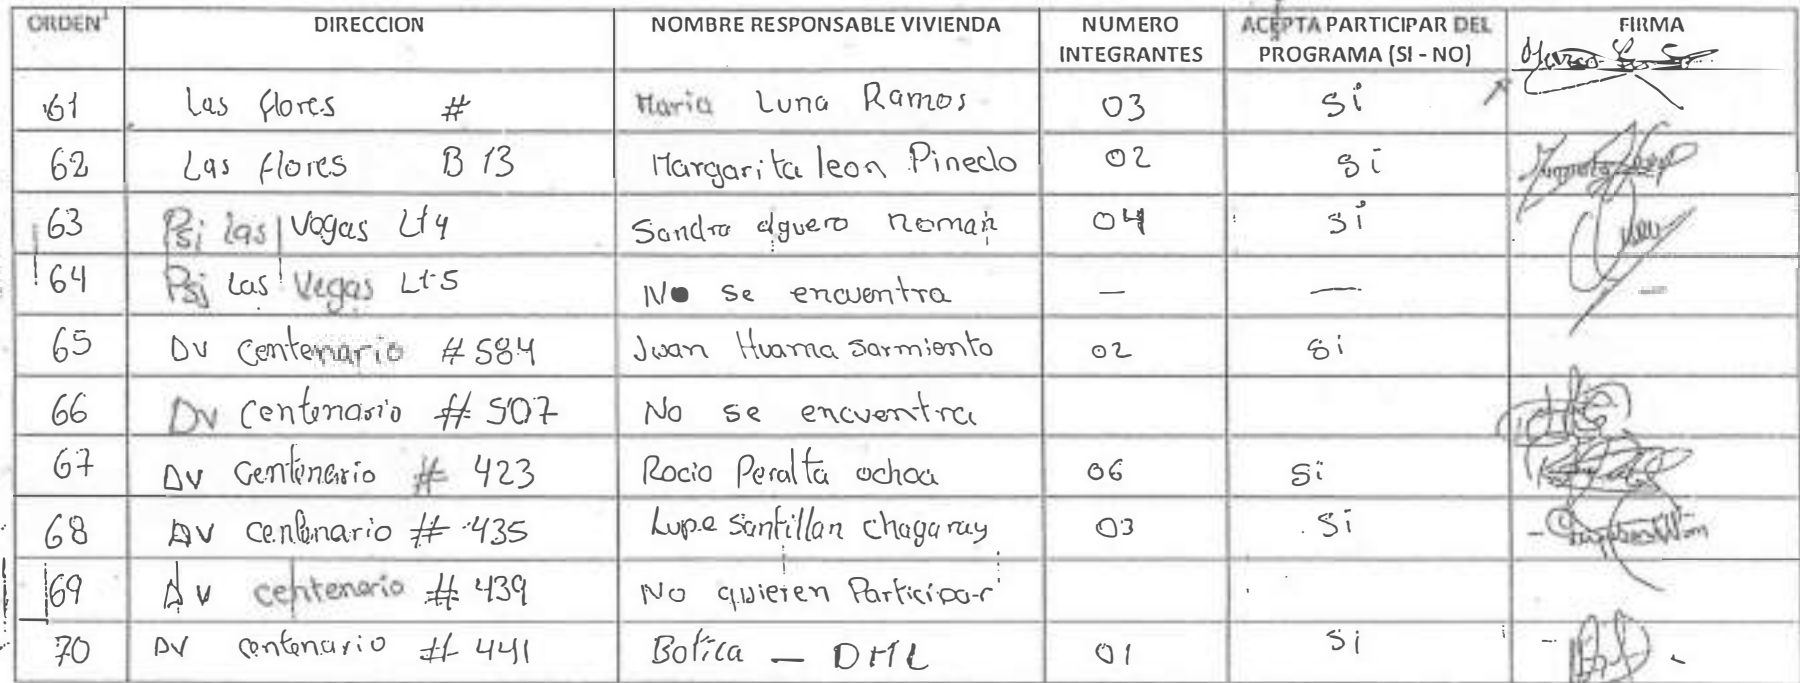 ORDEN¹ DIRECCION NOMBRE RESPONSABLE VIVIENDA NUMERO INTEGRANTES ACEPTA PARTICIPAR DEL PROGRAMA (SI - NO) FIRMA
61 Las flores # Maria Luna Ramos 03 Si
62 Las flores B 13 Margarita leon Pinedo 02 si
63 Psj las Vegas Lt 4 Sandra aguero roman 04 si
64 Psj Las Vegas Lt-5 No se encuentra — —
65 Av centenario # 584 Juan Huama Sarmiento 02 si
66 Av centenario # 507 No se encuentra
67 Av centenario # 423 Rocio Peralta ochoa 06 si
68 Av centenario # 435 Lupe Santillan Chagaray 03 Si
69 Av centenario # 439 No quieren Participar
70 Av centenario # 441 Botica — DML 01 Si